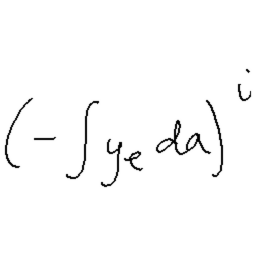 $(-\int y_e \, da)^i$